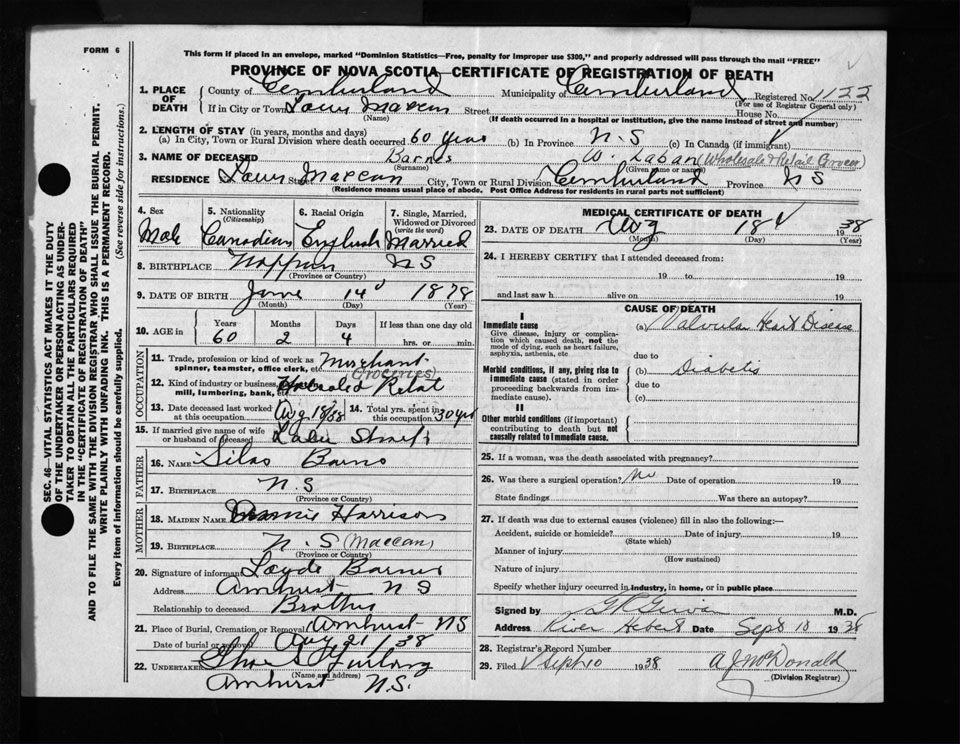 FORM 6
This form if placed in an envelope, marked "Dominion Statistics—Free, penalty for improper use $300," and properly addressed will pass through the mail "FREE"
PROVINCE OF NOVA SCOTIA CERTIFICATE OF REGISTRATION OF DEATH
1. PLACE OF DEATH
County of Cumberland Municipality of Cumberland Registered No. 1122
(For use of Registrar General only)
If in City or Town Lower Maccan Street House No.
(Name) (If death occurred in a hospital or institution, give the name instead of street and number)
2. LENGTH OF STAY (in years, months and days)
(a) In City, Town or Rural Division where death occurred 60 years (b) In Province N-S (c) In Canada (if immigrant)
3. NAME OF DECEASED Barnes W. Laban (Wholesale & Retail Grocer)
(Surname) (Given name or names)
RESIDENCE Lower Maccan Street City, Town or Rural Division Cumberland Province NS
(Residence means usual place of abode. Post Office Address for residents in rural parts not sufficient)
4. Sex Male
5. Nationality (Citizenship) Canadian
6. Racial Origin English
7. Single, Married, Widowed or Divorced (write the word) Married
8. BIRTHPLACE Nappan NS
(Province or Country)
9. DATE OF BIRTH June 14 1878
(Month) (Day) (Year)
10. AGE in Years Months Days If less than one day old
60 2 4 hrs. or min.
OCCUPATION
11. Trade, profession or kind of work as spinner, teamster, office clerk, etc. Merchant
(Groceries)
12. Kind of industry or business, mill, lumbering, bank, etc.
13. Date deceased last worked at this occupation Aug 18/38
14. Total yrs. spent in this occupation 30 yrs
15. If married give name of wife or husband of deceased
FATHER
16. NAME Silas Barns
17. BIRTHPLACE N.S
(Province or Country)
MOTHER
18. MAIDEN NAME Harrison
19. BIRTHPLACE N.S (Maccan)
(Province or Country)
20. Signature of informant Loyde Barnes
Address Amherst N S
Relationship to deceased Brother
21. Place of Burial, Cremation or Removal Amherst NS
Date of burial or removal Aug 21/38
22. UNDERTAKER Furlong
(Name and address)
Amherst N.S.
MEDICAL CERTIFICATE OF DEATH
23. DATE OF DEATH Aug 18 1938
(Month) (Day) (Year)
24. I HEREBY CERTIFY that I attended deceased from:
19 to 19
and last saw h alive on 19
CAUSE OF DEATH
I
Immediate cause
Give disease, injury or complication which caused death, not the mode of dying, such as heart failure, asphyxia, asthenia, etc
(a) Valvular Heart Disease
due to
Morbid conditions, if any, giving rise to immediate cause (stated in order proceeding backwards from immediate cause).
(b) Diabetis
due to
(c)
II
Other morbid conditions (if important) contributing to death but not causally related to immediate cause.
25. If a woman, was the death associated with pregnancy?
26. Was there a surgical operation? No Date of operation 19
State findings Was there an autopsy?
27. If death was due to external causes (violence) fill in also the following:—
Accident, suicide or homicide? Date of injury 19
(State which)
Manner of injury
(How sustained)
Nature of injury
Specify whether injury occurred in industry, in home, or in public place
Signed by M.D.
Address River Hebert Date Sept 10 1938
28. Registrar's Record Number
29. Filed Sept 10 1938 A J McDonald
(Division Registrar)
SEC. 46—VITAL STATISTICS ACT MAKES IT THE DUTY
OF THE UNDERTAKER OR PERSON ACTING AS UNDER-
TAKER TO OBTAIN ALL THE PARTICULARS REQUIRED
IN THE "CERTIFICATE OF REGISTRATION OF DEATH"
AND TO FILE THE SAME WITH THE DIVISION REGISTRAR WHO SHALL ISSUE THE BURIAL PERMIT.
WRITE PLAINLY WITH UNFADING INK. THIS IS A PERMANENT RECORD.
Every item of information should be carefully supplied. (See reverse side for instructions.)